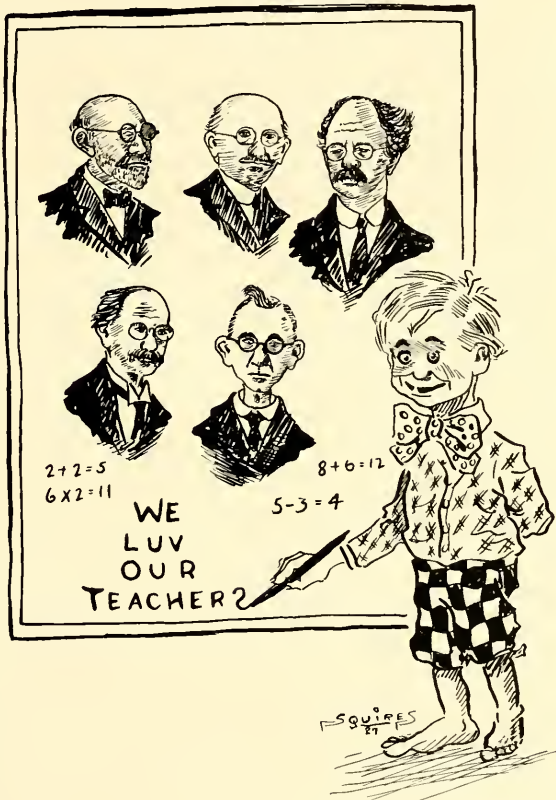 2+2=5
6x2=11
8+6=12
5-3=4
WE
LUV
OUR
TEACHERS
SQUIRES
27